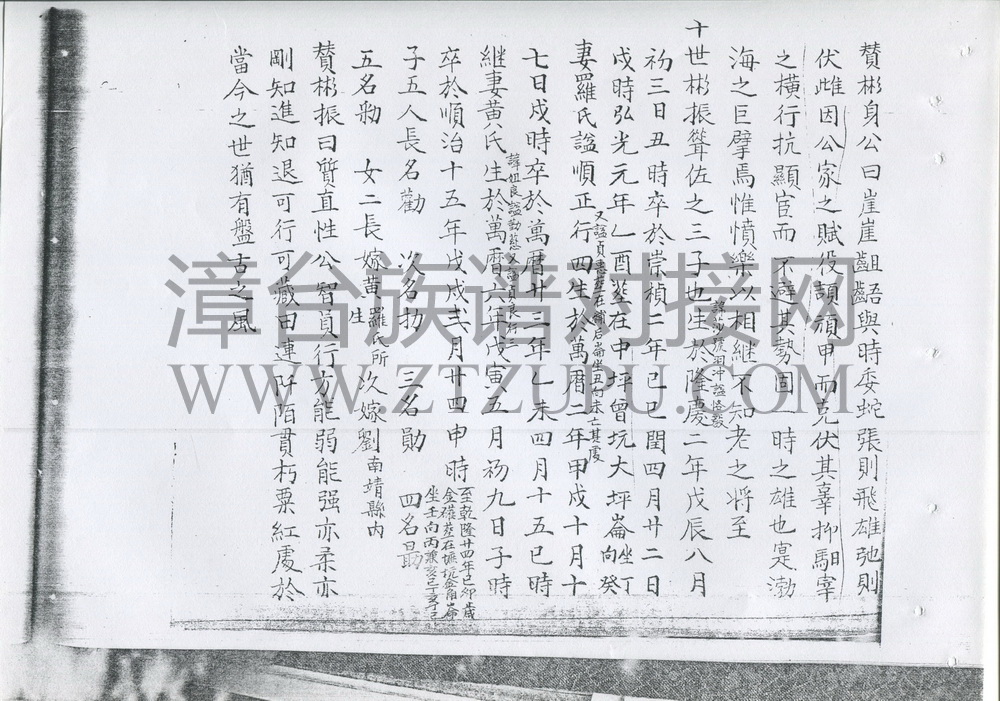 贊彬身公曰崖崖齟齬與時委蛇張則飛雄弛則
伏雌因公家之賦役頡頏甲而克伏其辜抑駔宰
之橫行抗顯宦而不避其勢固一時之雄也寔渤
海之巨擘焉惟憤樂以相繼不知老之将至
十世彬振聳佐之三子也生於隆慶二年戊辰八月
初三日丑時卒於崇禎二年己巳閏四月廿二日
戌時弘光元年乙酉塟在中坪曾坑大坪崙坐丁向癸
妻羅氏謚順正行四生於萬曆二年甲戌十月十
七日戌時卒於萬曆廿三年乙未四月十五巳時
継妻黃氏生於萬曆六年戊寅五月初九日子時
卒於順治十五年戊戌弍月廿四申時
至乾隆廿四年己卯歲
子五人長名勸 次名扐 三名勛 四名勗
五名勑 女二長嫁黃羅氏所生次嫁劉南靖縣内
贊彬振曰質直性公智員行方能弱能强亦柔亦
剛知進知退可行可藏田連阡陌貫朽粟紅處於
當今之世猶有盤古之風
漳台族谱对接网
WWW.ZTZUPU.COM